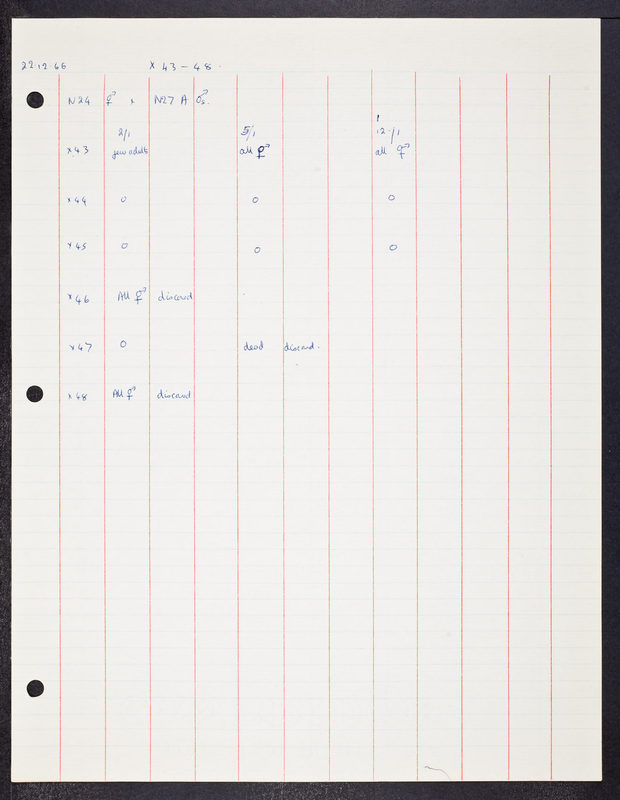 22.12.66 x 43 - 48.
N24 ⚥ x N27 A ♂s.
2/1 5/1 12/1
x43 few adults all ⚥ all ⚥
x44 0 0 0
x45 0 0 0
x46 All ⚥ discard
x47 0 dead discard.
x48 All ⚥ discard